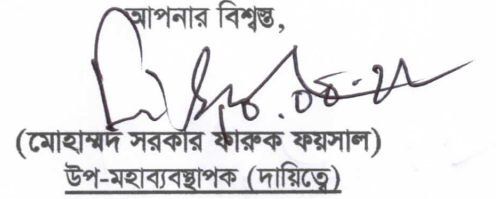 আপনার বিশ্বস্ত,
(মোহাম্মদ সরকার ফারুক ফয়সাল)
উপ-মহাব্যবস্থাপক (দায়িত্বে)